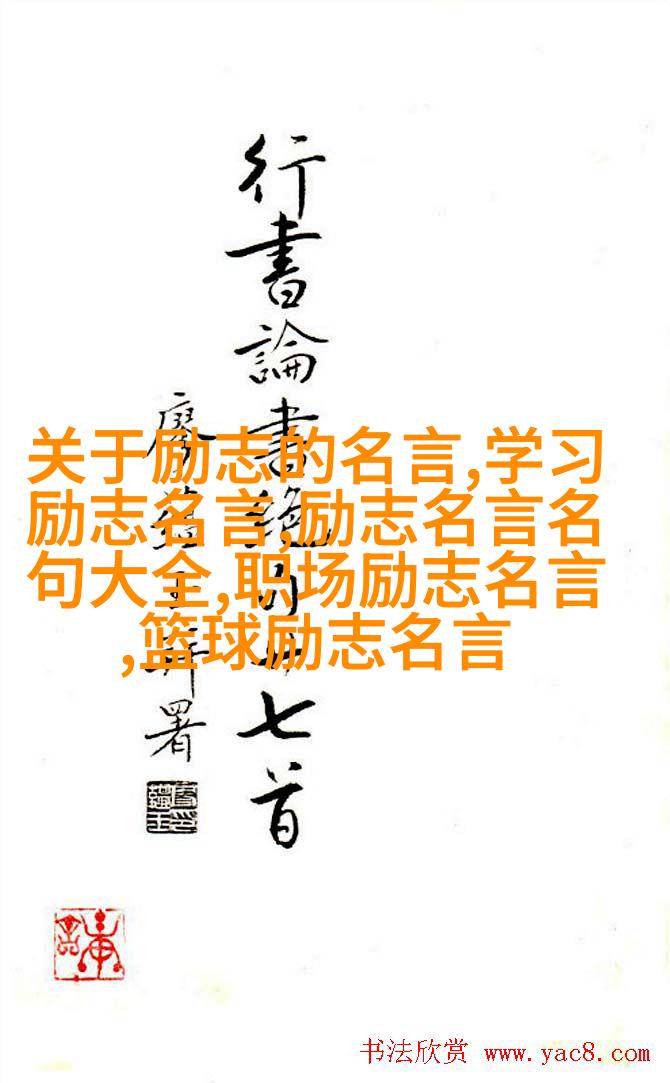 行書論書絕句廿七首
廖蘊玉署
关于励志的名言,学习
励志名言,励志名言名
句大全,职场励志名言
,篮球励志名言
书法欣赏 www.yac8.com